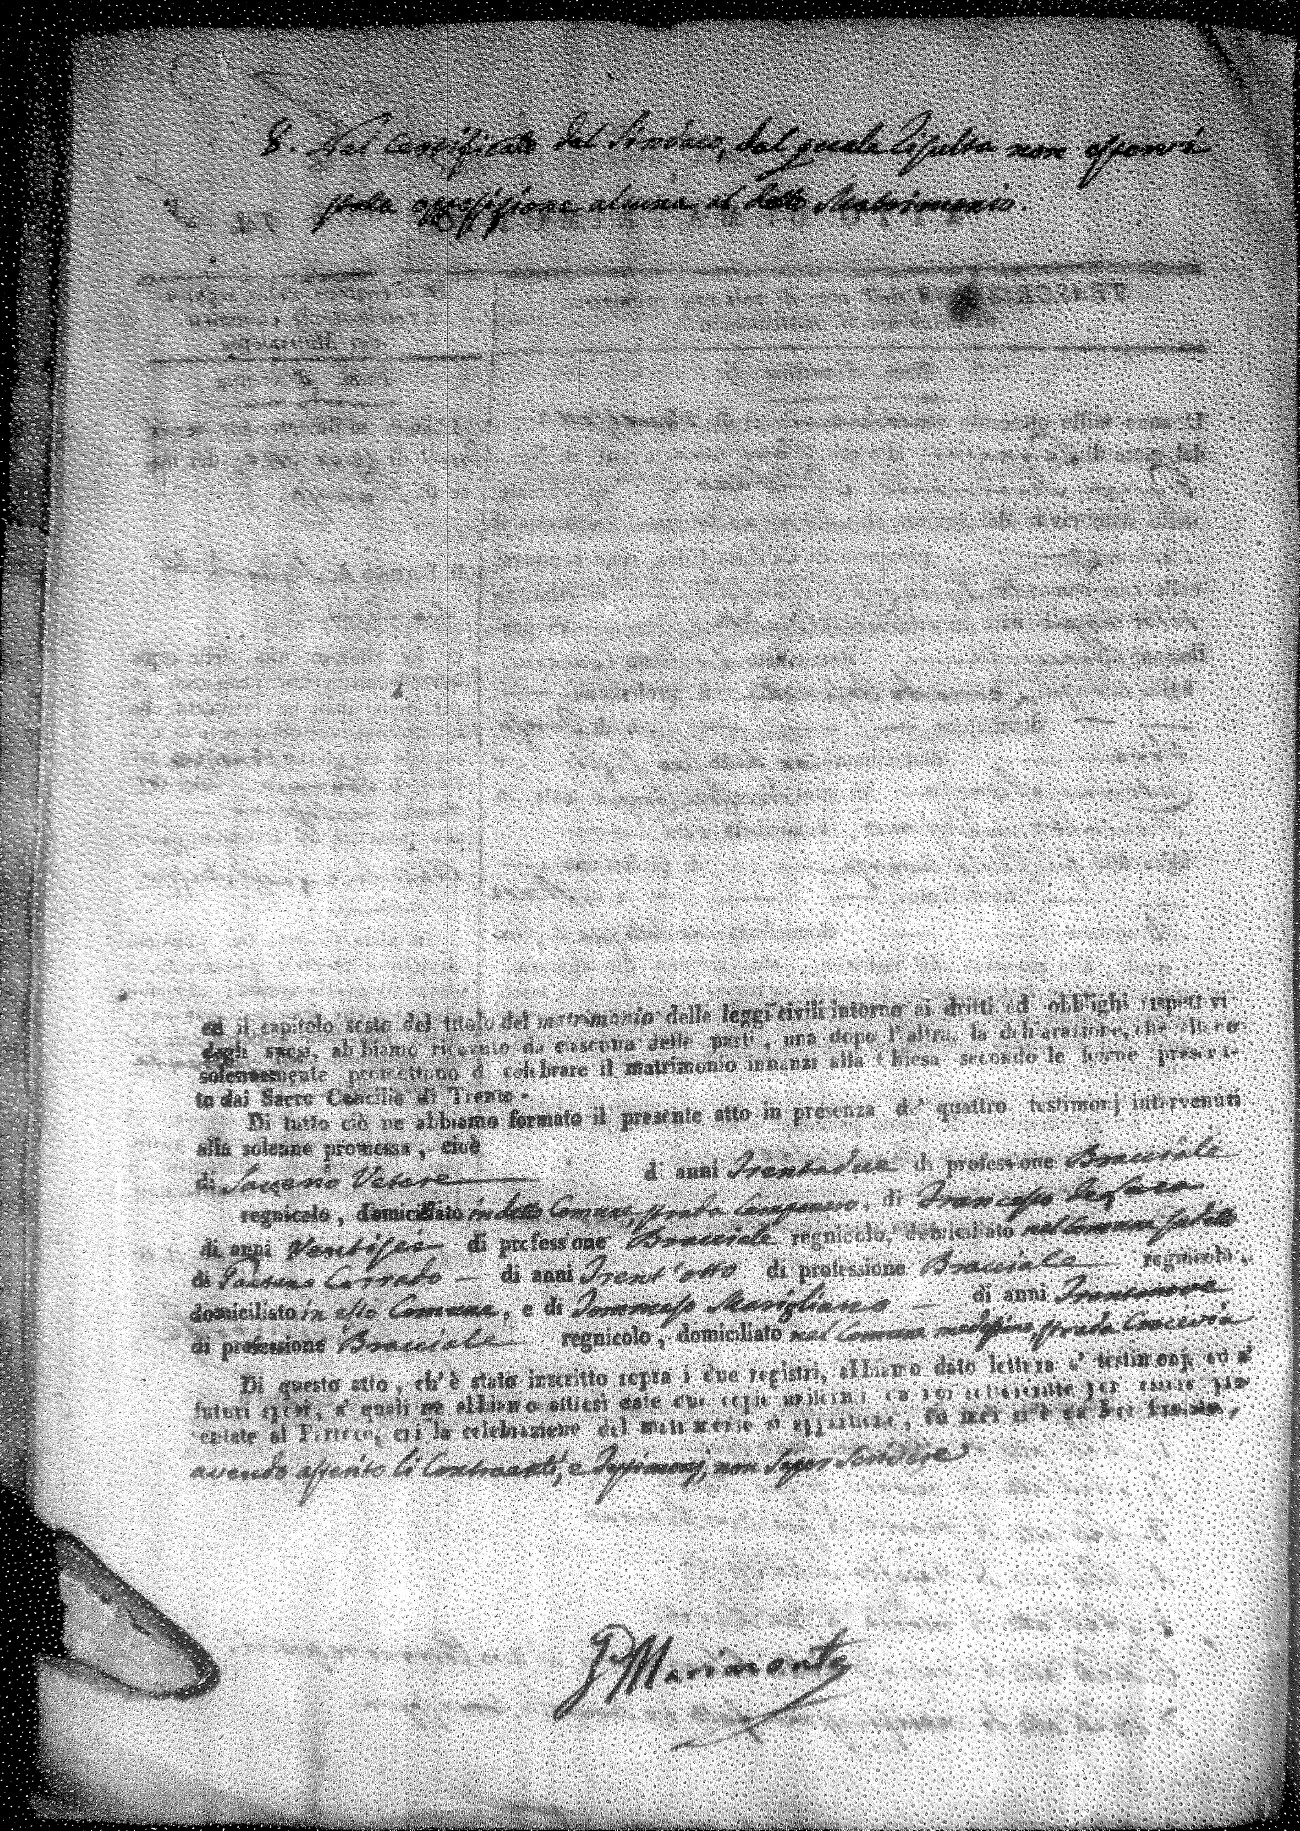 8. Nel Certificato del Sindaco, dal quale risulta non esservi
stata opposizione alcuna al detto Matrimonio.
ed il capitolo sesto del titolo del matrimonio delle leggi civili intorno ai dritti ed obblighi rispettivi
degli sposi, abbiamo ricevuto da ciascuna delle parti, una dopo l'altra, la dichiarazione, che
solennemente promettono di celebrare il matrimonio innanzi alla Chiesa secondo le forme prescrit-
to dal Sacro Concilio di Trento.
Di tutto ciò ne abbiamo formato il presente atto in presenza de' quattro testimonj intervenuti
alla solenne promessa, cioè
di Vetere d' anni Trentadue di professione Bracciale
regnicolo, domiciliato in detto Comune, strada Campanaro, di Francesco
di anni Ventisei di professione Bracciale regnicolo, domiciliato nel Comune sudetto
di Corrado di anni Trent'otto di professione Bracciale regnicolo,
domiciliato in esso Comune, e di Tommaso Marigliano di anni Trentanove
di professione Bracciale regnicolo, domiciliato nel Comune medesimo, strada
Di questo atto, ch'è stato inscritto sopra i due registri, abbiamo dato lettura a' testimonj, ed a'
futuri sposi, a' quali ne abbiamo altresì date due copie uniformi da noi sottoscritte per essere pre-
sentate al Parroco, cui la celebrazione del matrimonio si appartiene, ed indi si è da Noi firmato,
avendo asserito li Contraenti, e Testimonj, non saper scrivere
Marimonte